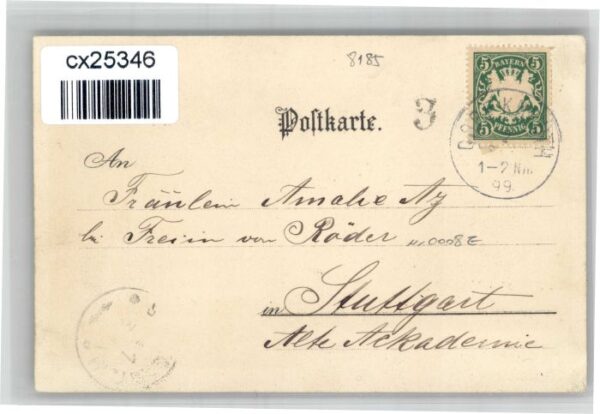 cx25346
8185
5 BAYERN 5
5 PFENNIG 5
Postkarte.
3
1-2 Nm.
99.
An
Fräulein Amalie Az
bei Freiin von Röder
in Stuttgart
Alte Ackademie